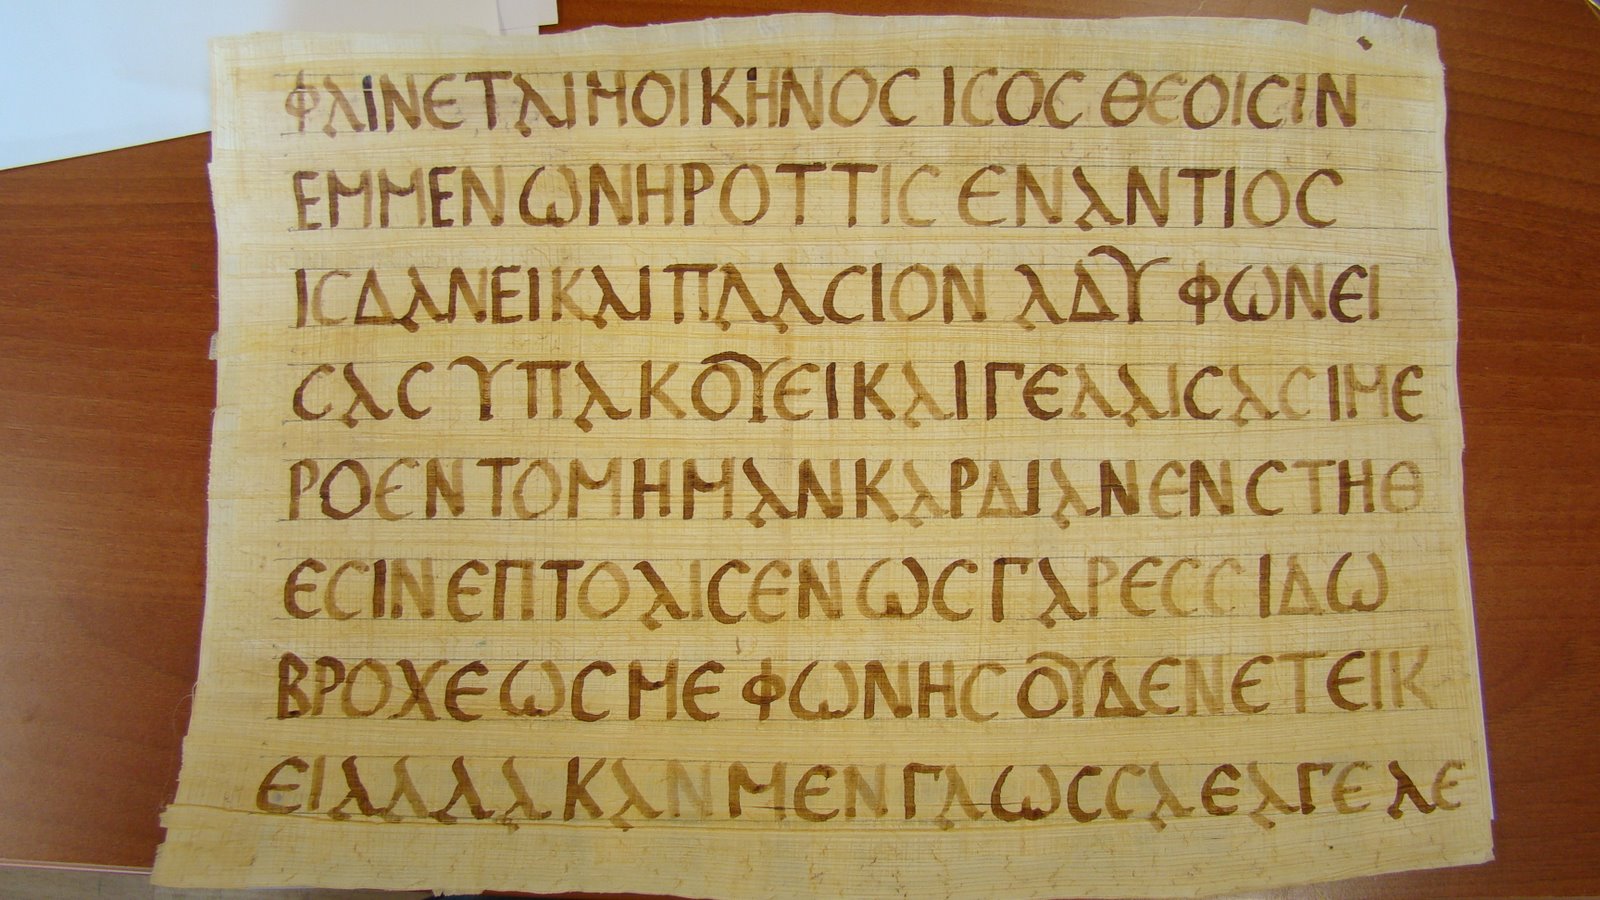 ΦΑΙΝΕΤΑΙ ΜΟΙ ΚΗΝΟϹ ΙϹΟϹ ΘΕΟΙϹΙΝ
ΕΜΜΕΝ ΩΝΗΡ ΟΤΤΙϹ ΕΝΑΝΤΙΟϹ
ΙϹΔΑΝΕΙ ΚΑΙ ΠΛΑϹΙΟΝ ΑΔΥ ΦΩΝΕΙ
ϹΑϹ ΥΠΑΚΟΥΕΙ ΚΑΙ ΓΕΛΑΙϹΑϹ ΙΜΕ
ΡΟΕΝ ΤΟ ΜΗ ΜΑΝ ΚΑΡΔΙΑΝ ΕΝ ϹΤΗΘ
ΕϹΙΝ ΕΠΤΟΑΙϹΕΝ ΩϹ ΓΑΡ ΕϹϹΙΔΩ
ΒΡΟΧΕΩϹ ΜΕ ΦΩΝΗϹ ΟΥΔΕΝ ΕΤ ΕΙΚ
ΕΙ ΑΛΛΑ ΚΑΝ ΜΕΝ ΓΛΩϹϹΑ ΕΑΓΕ ΛΕ